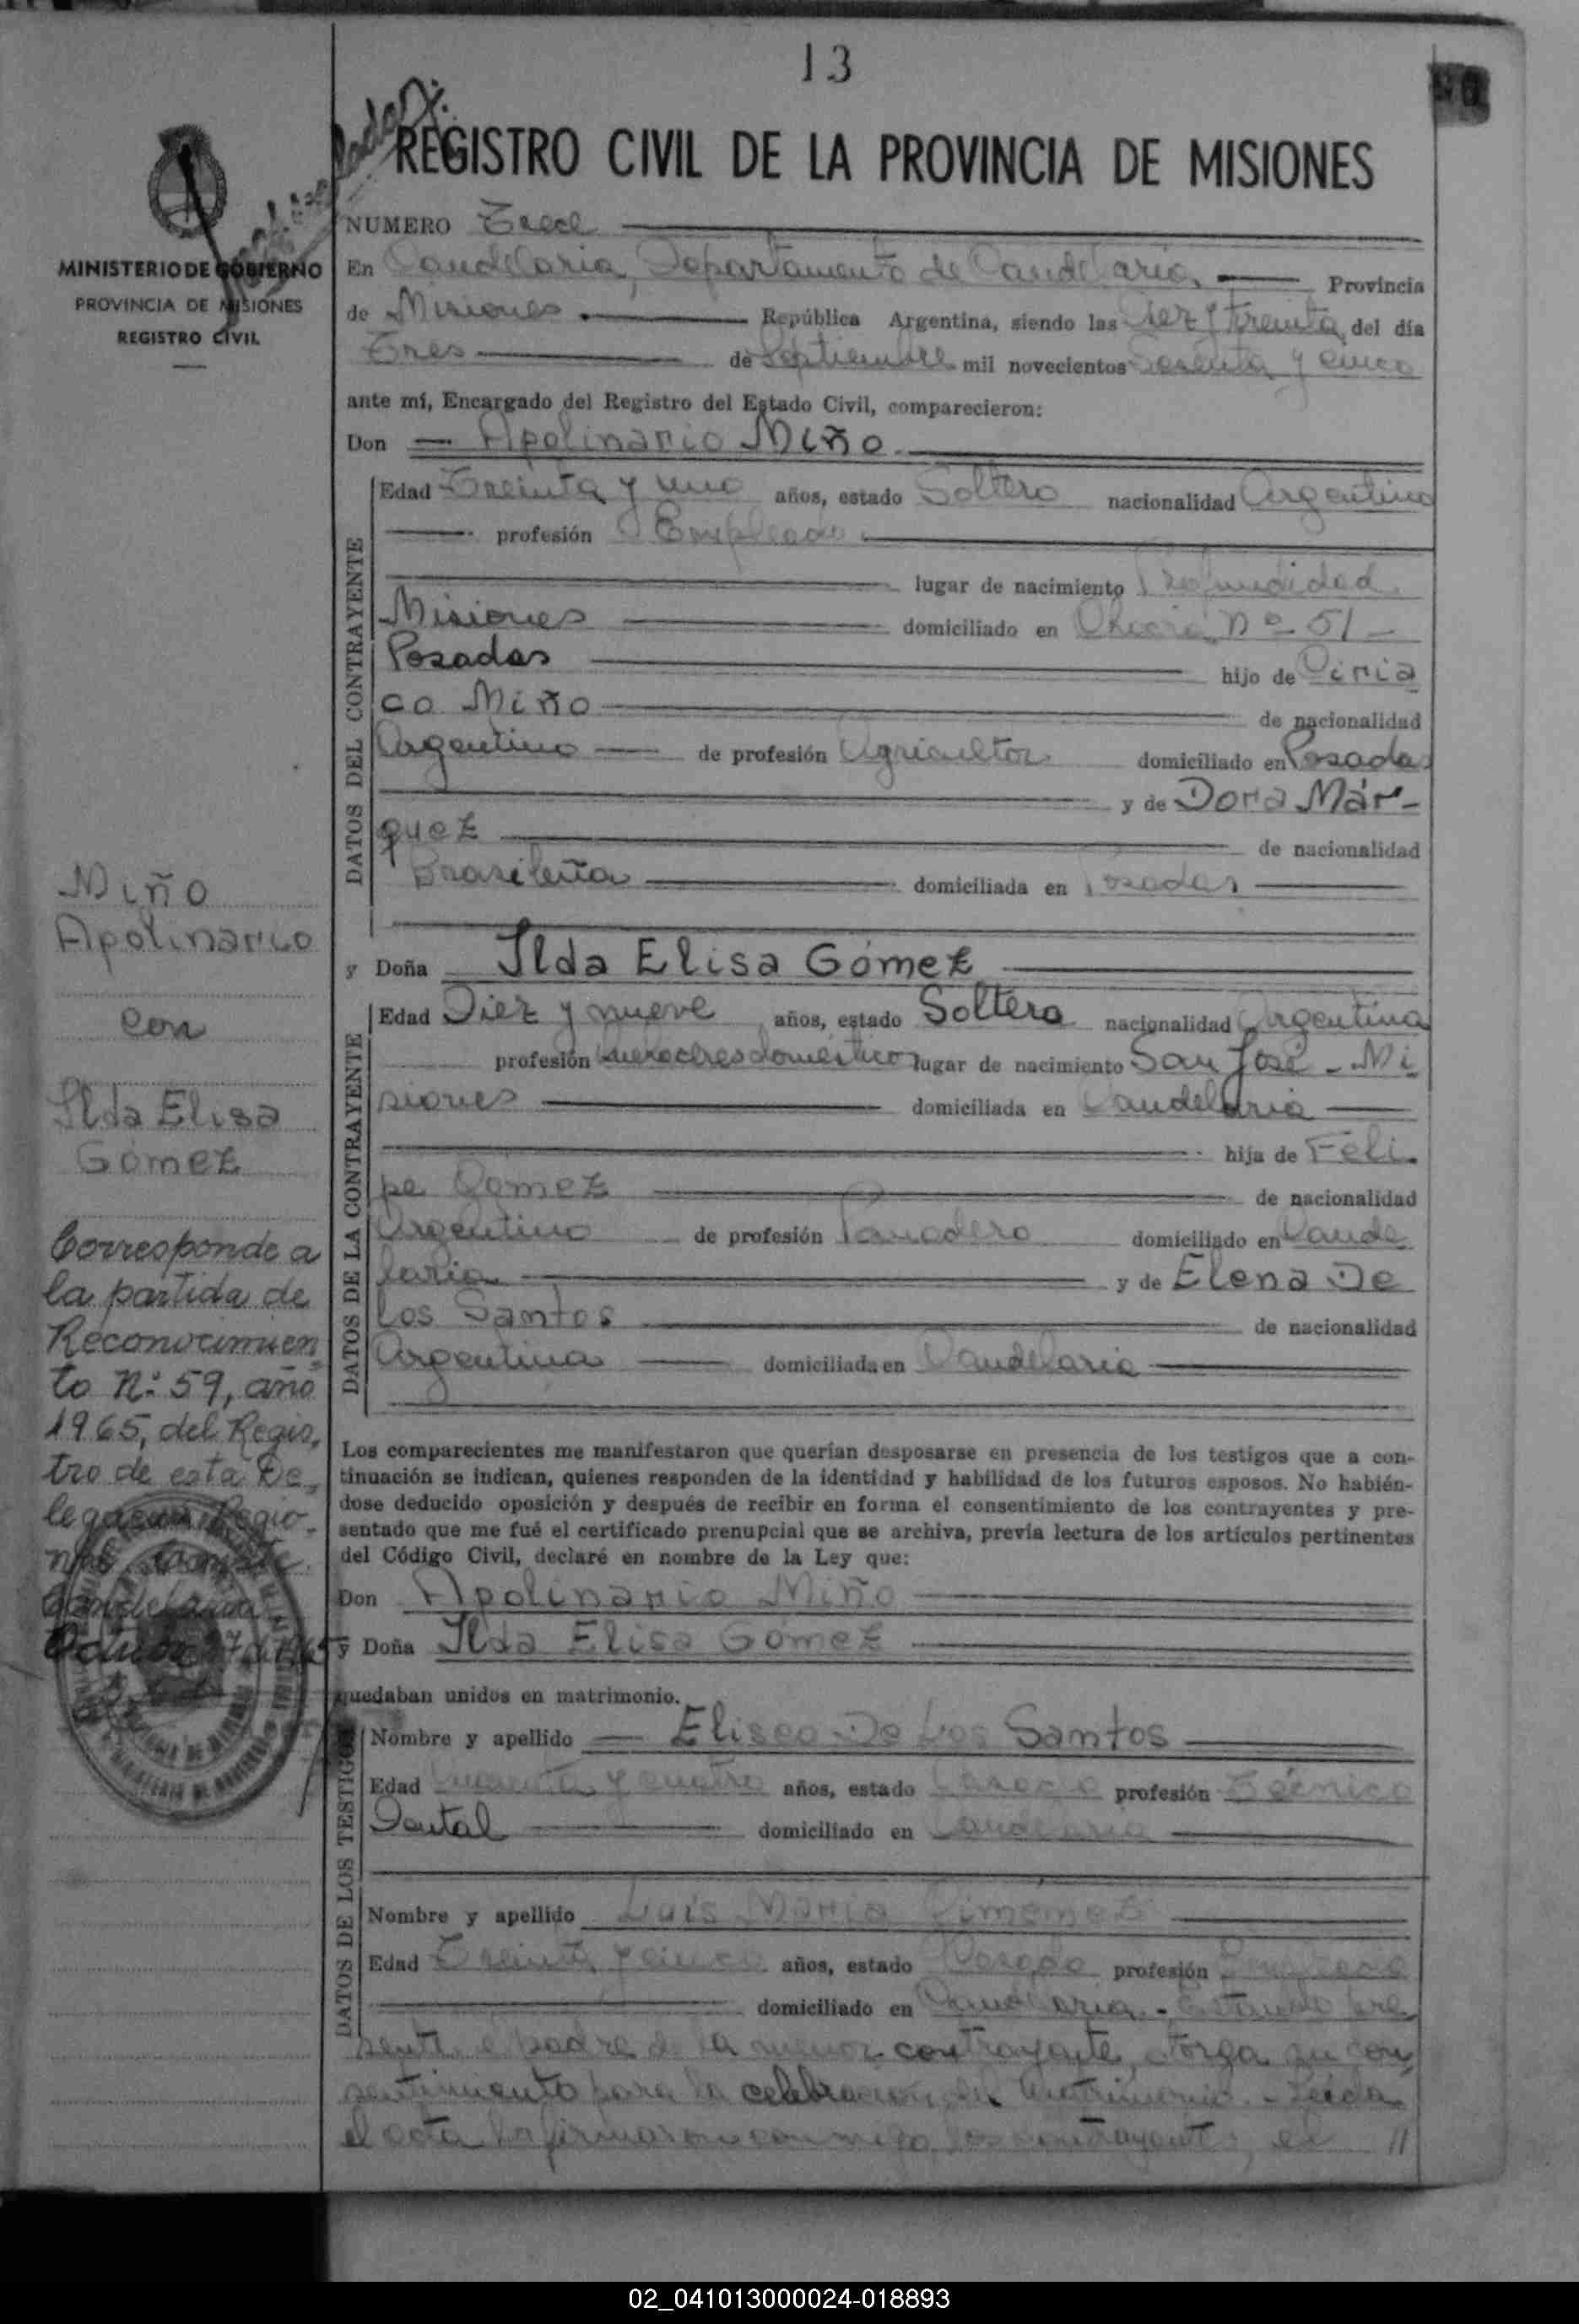 13
REGISTRO CIVIL DE LA PROVINCIA DE MISIONES
MINISTERIO DE GOBIERNO
PROVINCIA DE MISIONES
REGISTRO CIVIL
NUMERO Trece
En Candelaria, Departamento de Candelaria, Provincia
de Misiones República Argentina, siendo las diez y treinta del día
Tres de Septiembre mil novecientos sesenta y cinco
ante mí, Encargado del Registro del Estado Civil, comparecieron:
Don Apolinario Miño
DATOS DEL CONTRAYENTE
Edad Treinta y uno años, estado Soltero nacionalidad Argentino
profesión Empleado
lugar de nacimiento Profundidad
Misiones domiciliado en Chacra Nº 51
Posadas hijo de Ciria
co Miño de nacionalidad
Argentino de profesión Agricultor domiciliado en Posadas
y de Dora Már-
quez de nacionalidad
Brasileña domiciliada en Posadas
y Doña Ilda Elisa Gómez
DATOS DE LA CONTRAYENTE
Edad Diez y nueve años, estado Soltera nacionalidad Argentina
profesión domésticos lugar de nacimiento San José - Mi
siones domiciliada en Candelaria
hija de Feli-
pe Gomez de nacionalidad
Argentino de profesión Panadero domiciliado en Cande
laria y de Elena De
los Santos de nacionalidad
Argentina domiciliada en Candelaria
Los comparecientes me manifestaron que querían desposarse en presencia de los testigos que a con-
tinuación se indican, quienes responden de la identidad y habilidad de los futuros esposos. No habién-
dose deducido oposición y después de recibir en forma el consentimiento de los contrayentes y pre-
sentado que me fué el certificado prenupcial que se archiva, previa lectura de los artículos pertinentes
del Código Civil, declaré en nombre de la Ley que:
Don Apolinario Miño
y Doña Ilda Elisa Gómez
quedaban unidos en matrimonio.
DATOS DE LOS TESTIGOS
Nombre y apellido Eliseo De Los Santos
Edad Cuarenta y cuatro años, estado Casado profesión Técnico
Dental domiciliado en Candelaria
Nombre y apellido Luis María Gimenez
Edad Treinta y cinco años, estado Casado profesión Empleado
domiciliado en Candelaria. - Estando pre
sente el padre de la menor contrayente, otorga su con
sentimiento para la celebración del Matrimonio. - Leída
el acta la firmaron conmigo, los contrayentes, el //
Miño
Apolinario
con
Ilda Elisa
Gómez
Corresponde a
la partida de
Reconocimien
to Nº 59, año
1965, del Regis,
tro de esta De,
legación Regio-
Candelaria,
02_041013000024-018893